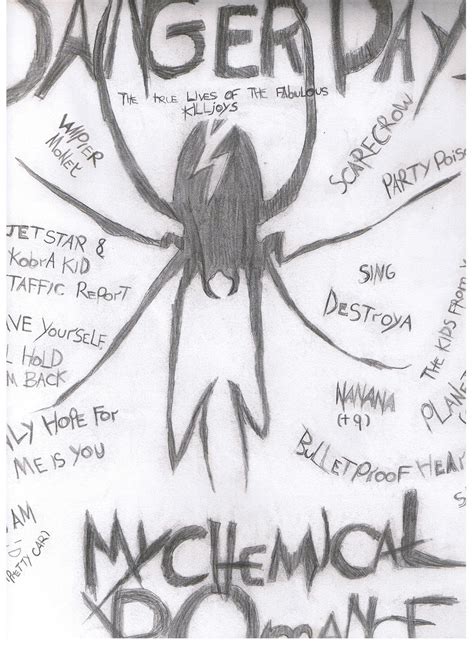 DANGER DAY
THE TRUE LIVES OF THE FABULOUS
KILLJOYS
VAMPIER
MONEY
SCARECROW
PARTY POIS
JET STAR &
KOBRA KID
TAFFIC REPORT
SING
DESTROYA
THE KIDS FROM
AVE YOURSELF,
L HOLD
M BACK
NANANA
(+9)
PLANE
NLY HOPE FOR
ME IS YOU
BULLETPROOF HEAR
S
AM
:D
(PRETTY CAR)
MY CHEMICAL
ROMANCE